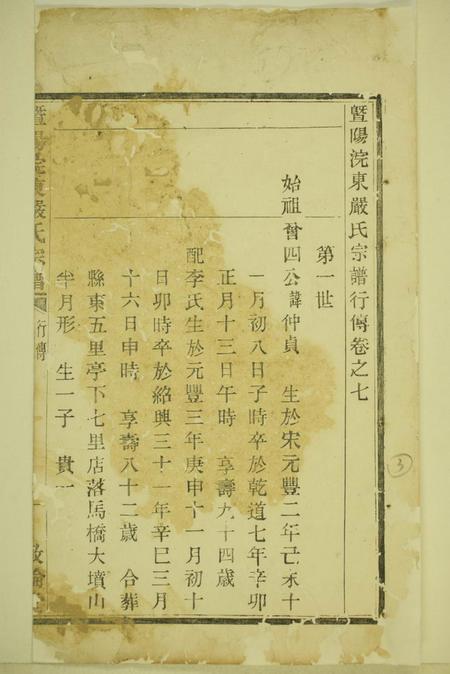 暨陽浣東嚴氏宗譜行傳卷之七
第一世
始祖曾四公諱仲貞 生於宋元豐二年己未十
一月初八日子時卒於乾道七年辛卯
正月十三日午時 享壽九十四歲
配李氏生於元豐三年庚申十一月初十
日卯時卒於紹興三十一年辛巳三月
十六日申時 享壽八十二歲 合葬
縣東五里亭下七里店落馬橋大墳山
半月形 生一子 貴一
暨陽浣東嚴氏宗譜 行傳 一 敘倫
3